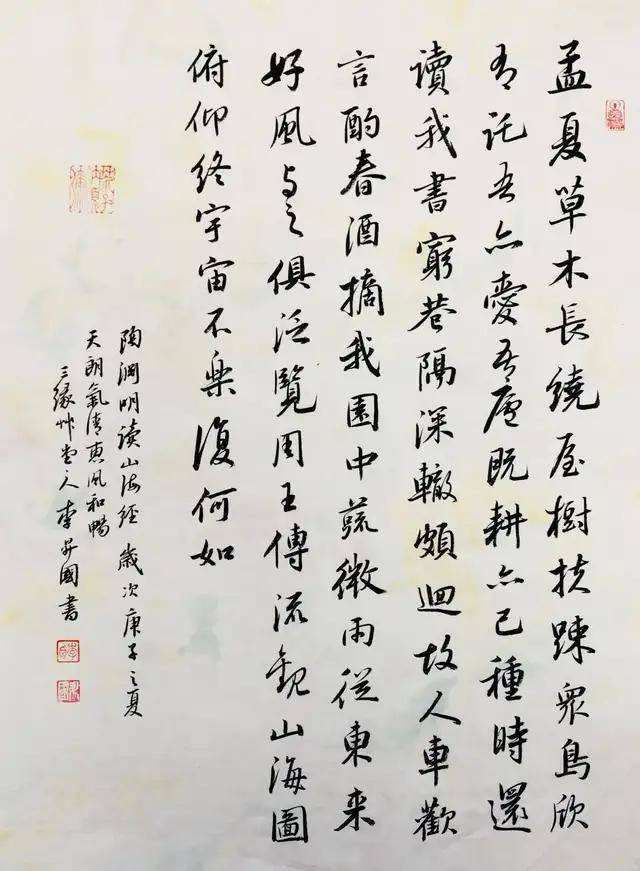 孟夏草木長繞屋樹扶踈眾鳥欣
有託吾亦愛吾廬既耕亦已種時還
讀我書窮巷隔深轍頗迴故人車歡
言酌春酒摘我園中蔬微雨從東来
好風与之俱泛覽周王傳流觀山海圖
俯仰終宇宙不樂復何如
陶淵明讀山海經 歲次庚子之夏
天朗氣清惠風和暢
三緣艸堂人 李國書